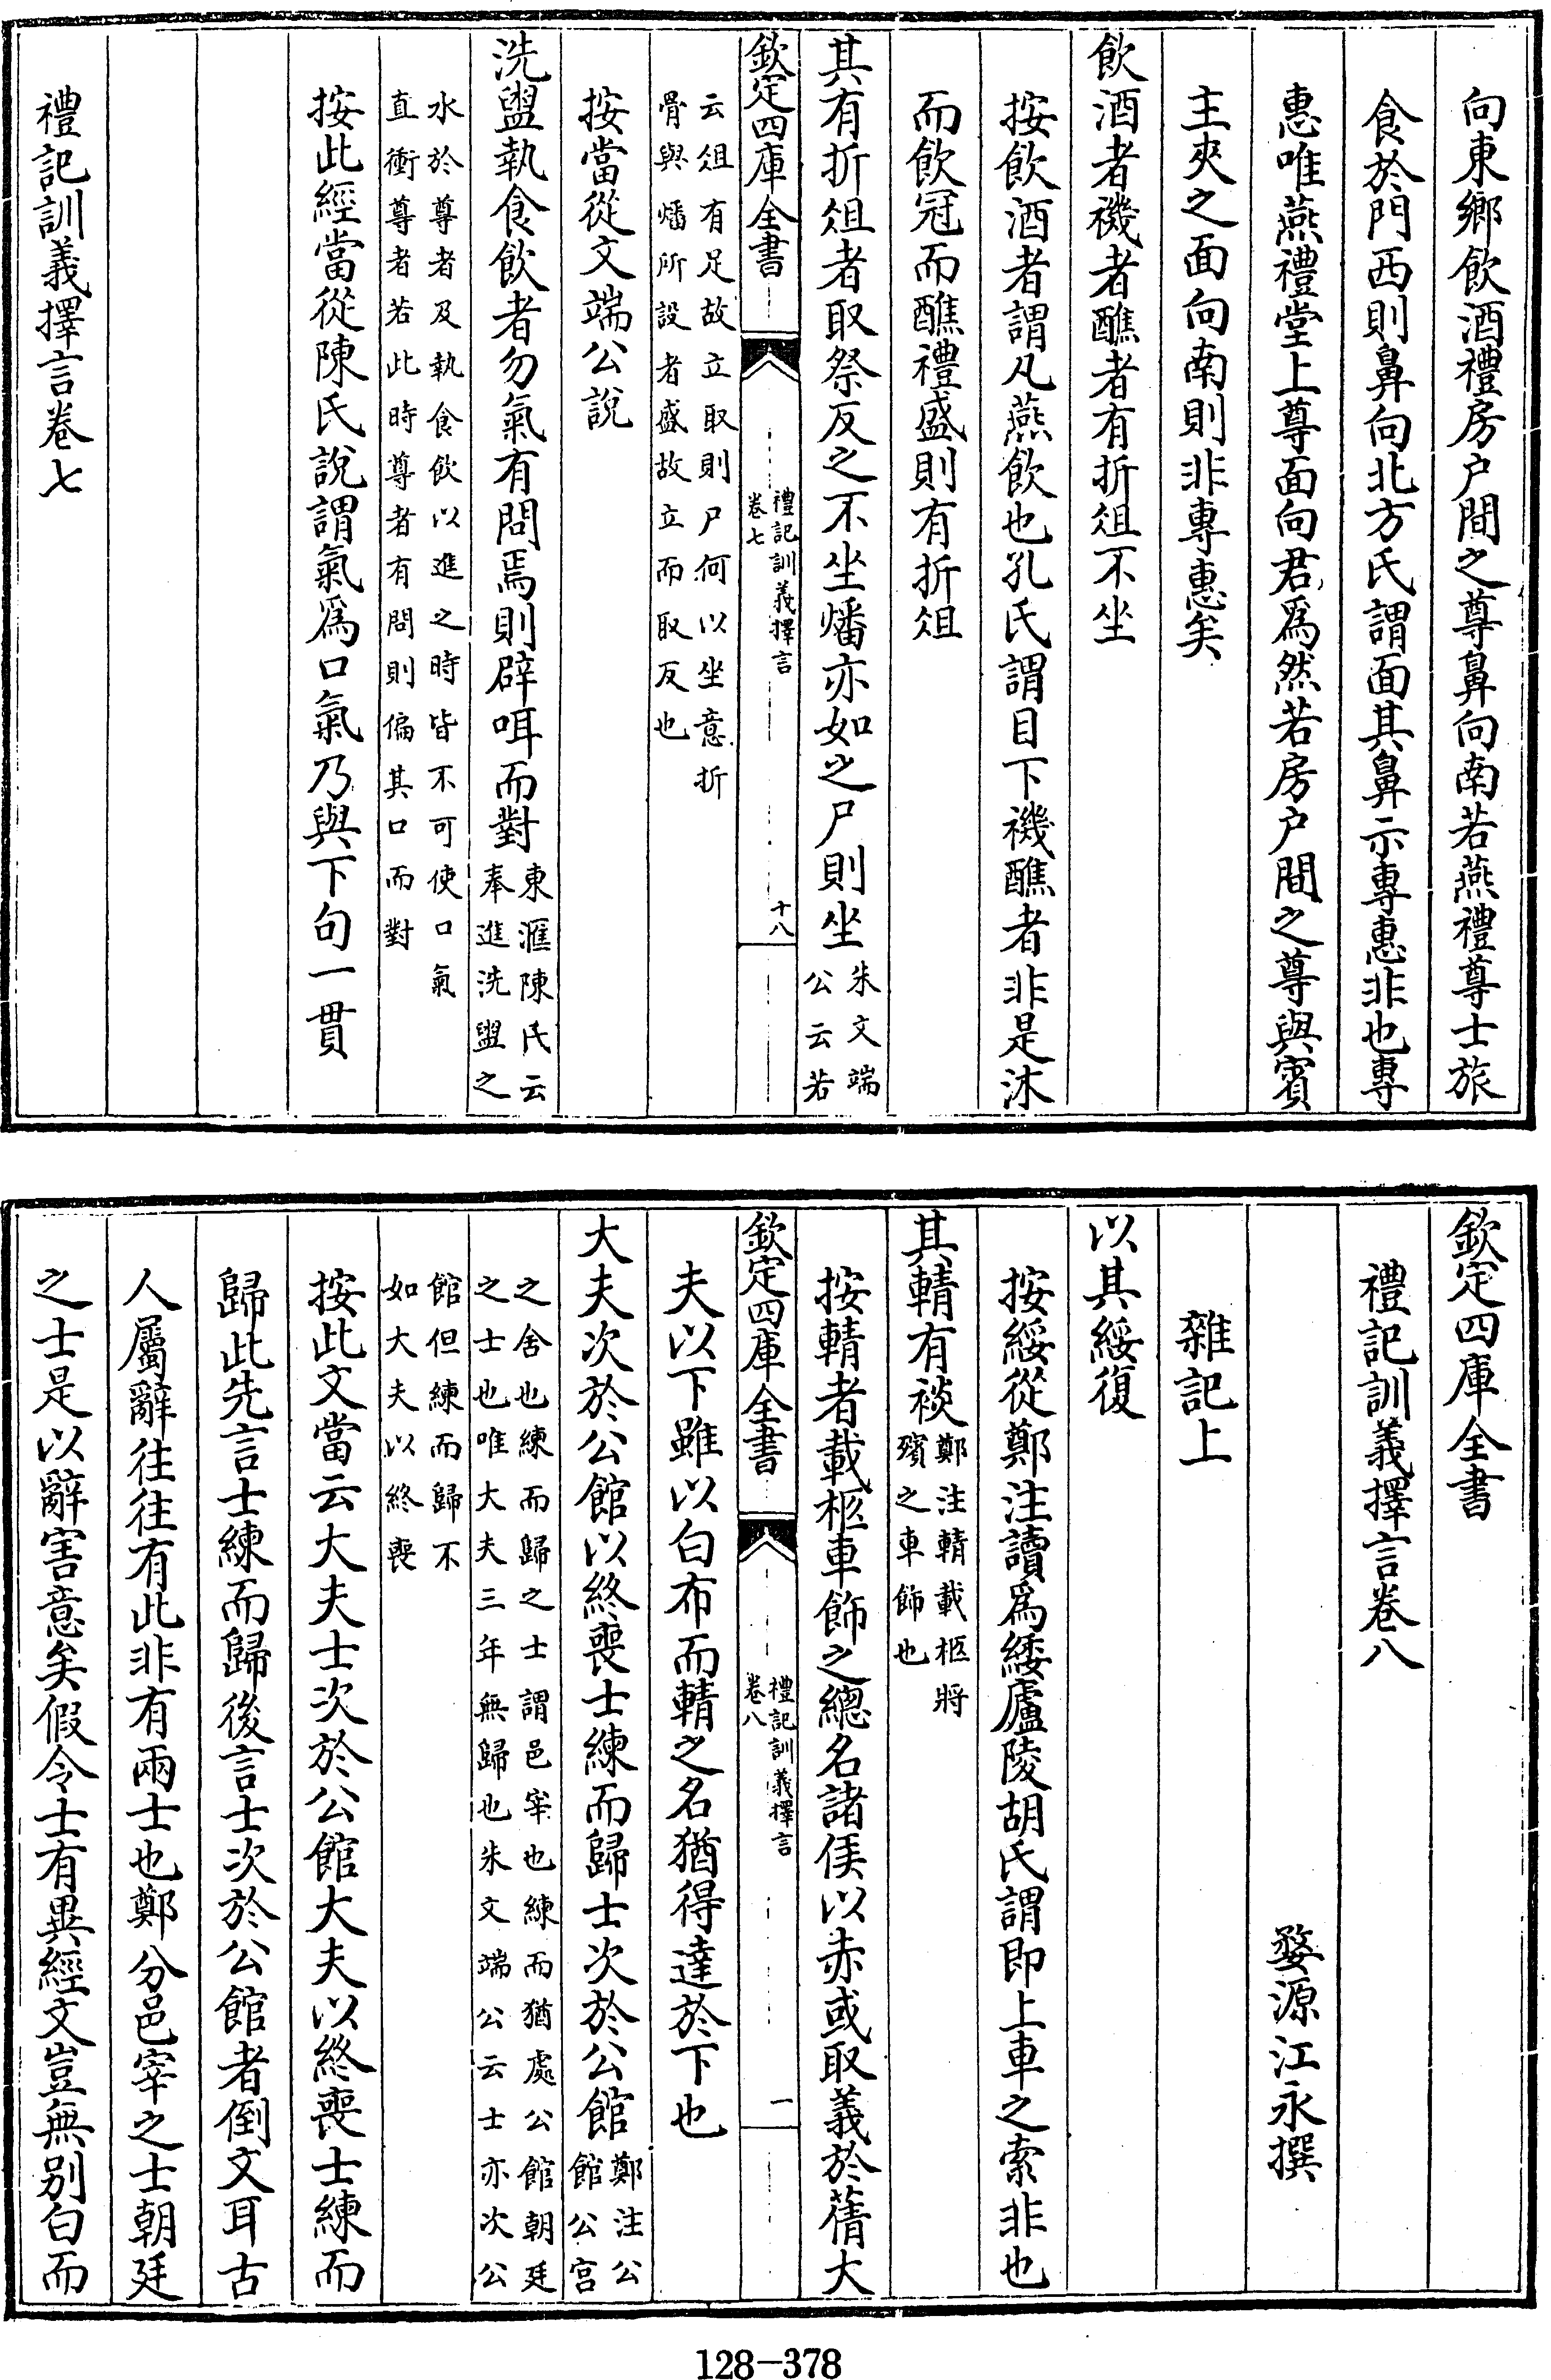 向東鄉飲酒禮房户間之尊鼻向南若燕禮尊士旅
食於門西則鼻向北方氏謂面其鼻示專惠非也專
惠唯燕禮堂上尊面向君爲然若房户間之尊與賓
主夾之面向南則非專惠矣
飲酒者禨者醮者有折俎不坐
按飲酒者謂凡燕飲也孔氏謂目下禨醮者非是沐
而飲冠而醮禮盛則有折俎
其有折俎者取祭反之不坐燔亦如之尸則坐
朱文端
公云若
欽定四庫全書
禮記訓義擇言
卷七
十八
云俎有足故立取則尸何以坐意折
骨與燔所設者盛故立而取反也
按當從文端公說
洗盥執食飲者勿氣有問焉則辟咡而對
東滙陳氏云
奉進洗盥之
水於尊者及執食飲以進之時皆不可使口氣
直衝尊者若此時尊者有問則偏其口而對
按此經當從陳氏說謂氣爲口氣乃與下句一貫
禮記訓義擇言卷七
欽定四庫全書
禮記訓義擇言卷八
婺源江永撰
雜記上
以其綏復
按綏從鄭注讀爲緌廬陵胡氏謂即上車之索非也
其輤有裧
鄭注輤載柩將
殯之車飾也
按輤者載柩車飾之總名諸侯以赤或取義於蒨大
欽定四庫全書
禮記訓義擇言
卷八
一
夫以下雖以白布而輤之名猶得達於下也
大夫次於公館以終喪士練而歸士次於公館
鄭注公
館公宮
之舍也練而歸之士謂邑宰也練而猶處公館朝廷
之士也唯大夫三年無歸也朱文端公云士亦次公
館但練而歸不
如大夫以終喪
按此文當云大夫士次於公館大夫以終喪士練而
歸此先言士練而歸後言士次於公館者倒文耳古
人屬辭往往有此非有兩士也鄭分邑宰之士朝廷
之士是以辭害意矣假令士有異經文豈無别白而
128-378